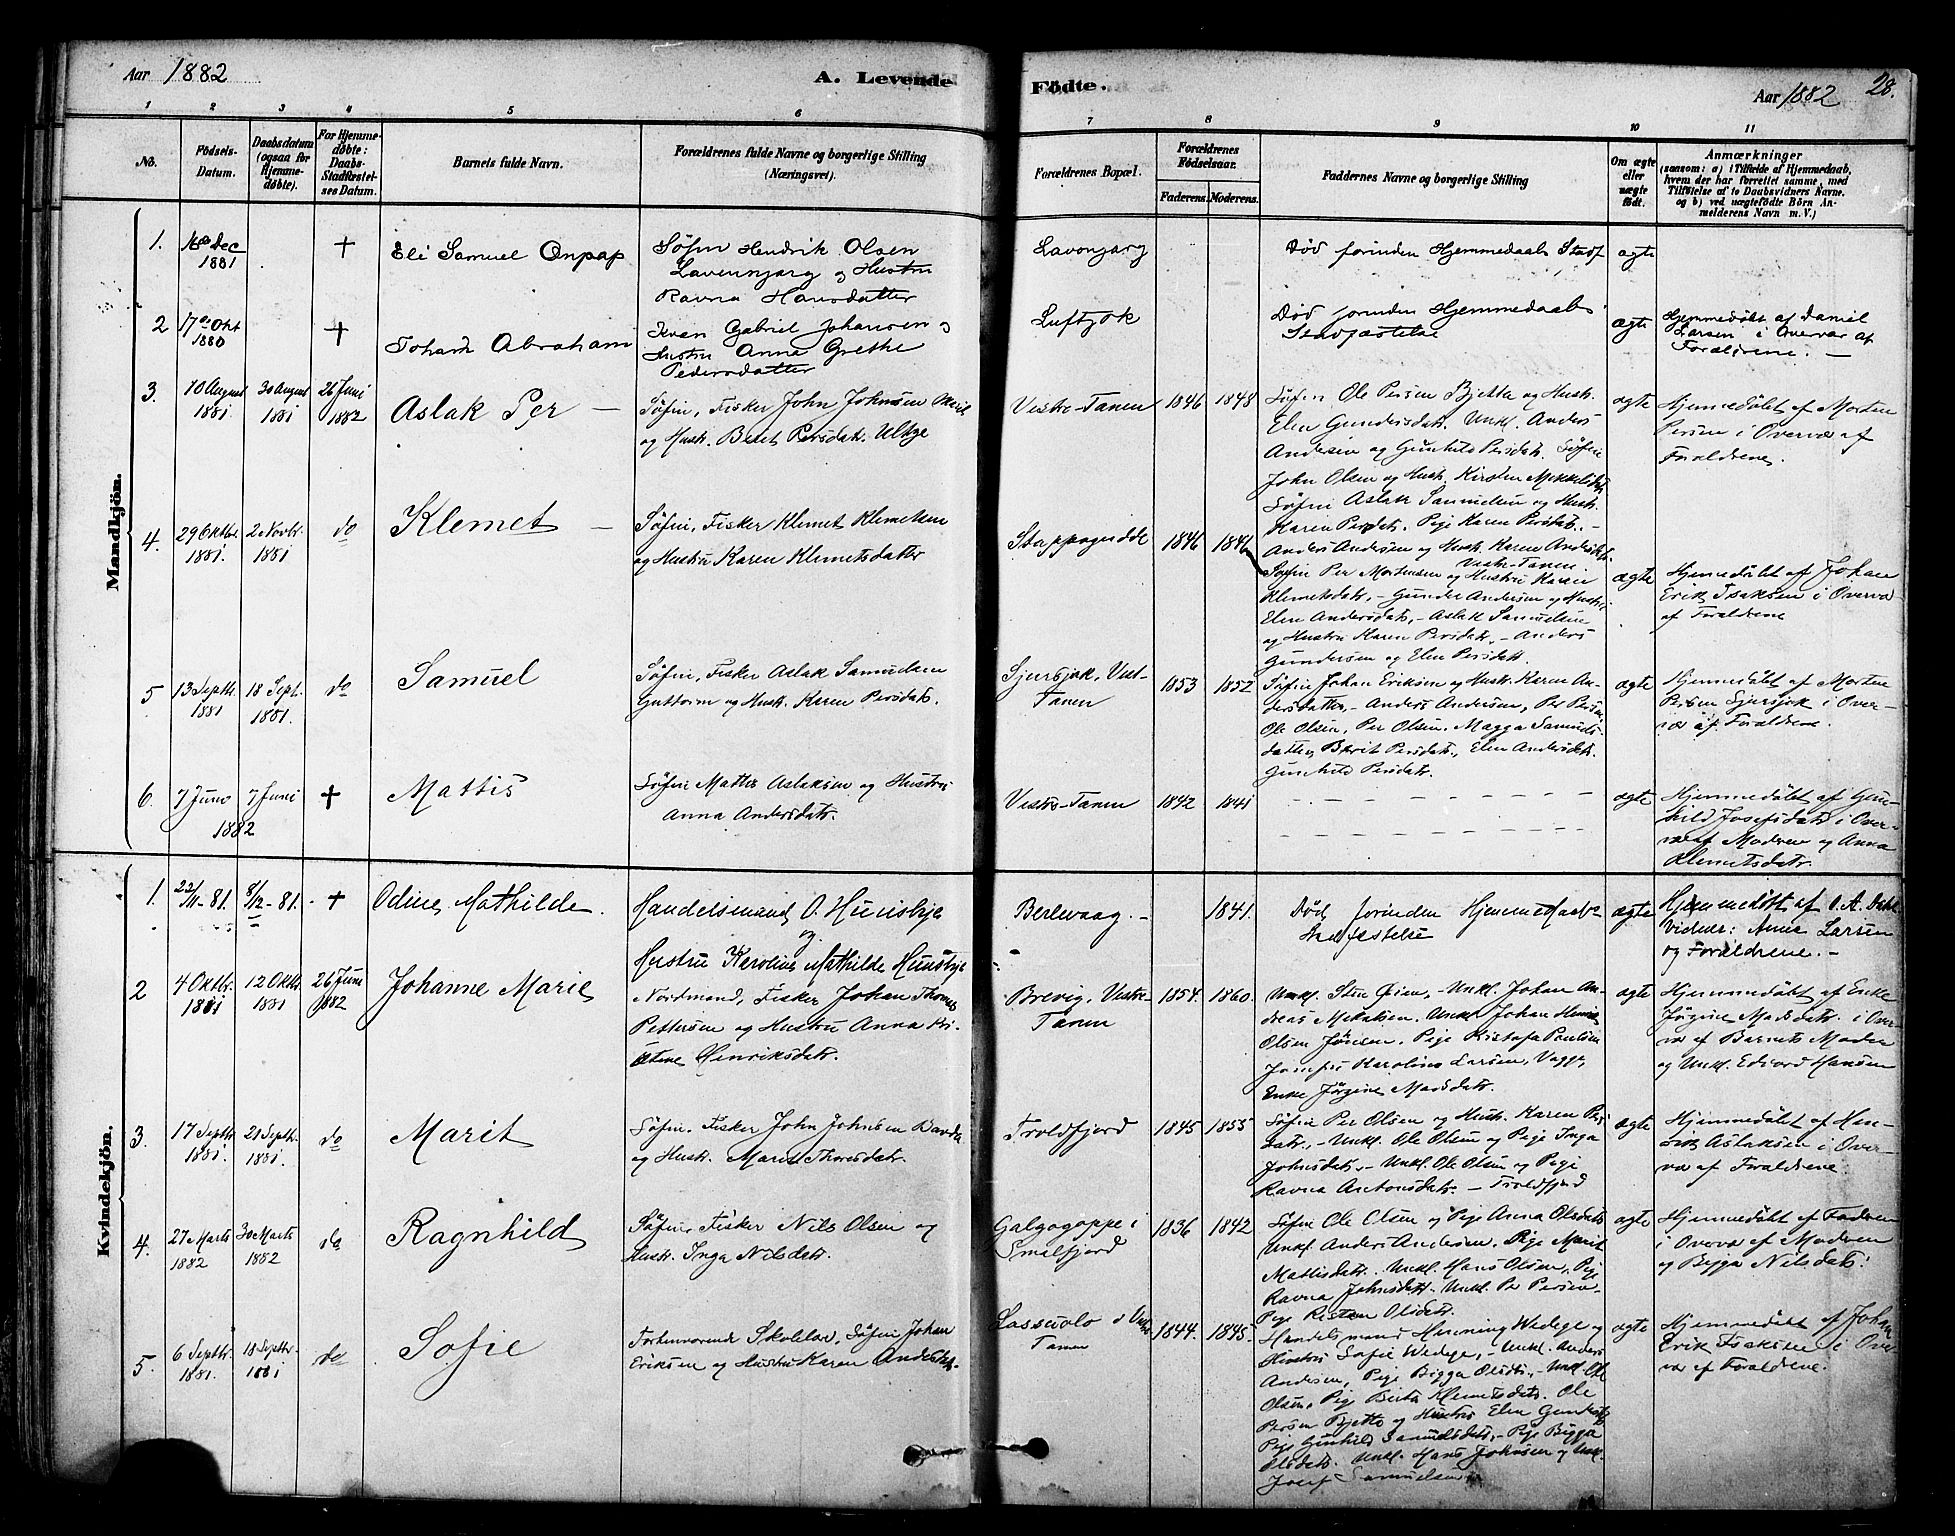 Aar 1882
A. Levende
Födte.
Aar 1882
28.
1
2
3
4
5
6
7
8
9
10
11
No.
Födsels-
Datum.
Daabsdatum
(ogsaa for
Hjemme-
döbte).
For Hjemme-
döbte:
Daabs-
Stadfæstel-
ses Datum.
Barnets fulde Navn.
Forældrenes fulde Navne og borgerlige Stilling
(Næringsvei).
Forældrenes Bopæl.
Forældrenes
Födselsaar.
Faderens.
Moderens.
Faddernes Navne og borgerlige Stilling
Om ægte
eller
uægte
födt.
Anmærkninger
(saasom: a) i Tilfælde af Hjemmedaab,
hvem der har forrettet samme, med
Tilföielse af to Daabsvidners Navne.
og b) ved uægtefödte Börn An-
melderens Navn m. V.)
Mandkjön.
1.
Dec
1881
†
Eli Samuel Onpap
Søfin Hendrik Olsen
Lavonjarg og Hustru
Ravna Hansdatter
Lavonjarg
Død forinden Hjemmedaabs Stadf
ægte
2
17de Okt
1880
†
Johan Abraham
Kvæn Gabriel Johansen og
Hustru Anna Grethe
Pedersdatter
Luftjok
Død forinden Hjemmedaabs
Stadfæstelse
ægte
Hjemmedøbt af Daniel
Larsen i Overvær af
Forældrene. —
3.
10 August
1881.
30 August
1881
26 Juni
1882
Aslak Per —
Søfin, Fisker John Johnsen
og Hustr. Beret Persdatr. Ultze
Vestre-Tanen
1846
1848
Søfin Ole Persen Bjetta og Hustr.
Elen Gundersdatr. Unkl. Anders
Andersen og Gunhild Persdatr. Søfin
John Olsen og Hustr. Kirsten Mikkelsdatr.
Søfin Aslak Samuelsen og Hustr.
Karen Persdatr. Pige Karen Persdatr. —
Anders Andersen og Hustr. Karen Andersdtr.
Vestre-Tanen
ægte
Hjemmedøbt af Morten
Persen i Overvær af
Forældrene.
4.
29 Oktbr.
1881
2 Novbr.
1881
do
Klemet —
Søfin, Fisker Klemet Klemetsen
og Hustru Karen Klemetsdatter
Stappogiedde
1846
1846
Søfin Per Mortensen og Hustru Karen
Klemetsdatr. — Gunder Andersen og Hustr.
Elen Andersdatr. — Aslak Samuelsen
og Hustru Karen Persdatr. — Anders
Gundersen og Elen Persdatr.
ægte
Hjemmedøbt af Johan
Erik Isaksen i Overvær
af Forældrene
5
13 Septbr.
1881
18 Sept.
1881.
do
Samuel
Søfin, Fisker Aslak Samuelsen
Guttorm og Hustr. Karen Persdatr.
Sjursjok, Vest-
Tanen
1853
1852
Søfin Johan Eriksen og Hustr. Karen An-
dersdatter, — Anders Andersen, Per Persen,
Ole Olsen, Per Olsen. Magga Samuels-
datter, Berit Persdatr., Elen Andersdatr.
Gunhild Persdatr.
ægte
Hjemmedøbt af Morten
Persen Sjursjok i Over-
vær af Forældrene.
6.
7 Juno
7 Juni
1882
†
Mattis
Søfin Mattis Aslaksen og Hustru
Anna Andersdatr.
Vestre-Tanen
1842
1841
ægte
Hjemmedøbt af Gun-
hild Josefsdatr i Over-
vær af Modren og Anna
Klemetsdatr.
Kvindekjön.
1.
22/11-81.
8/12-81.
†
Odine Mathilde.
Handelsmand O. Hunsbye
og
Hustru Karoline Mathilde Hunsbye
Berlevaag. —
1841.
Død forinden Hjemmedaabs
Stadfæstelse
ægte
Hjemmedøbt af O. A. Dahl
Vidner: Anne Larsen
og Forældrene. —
2
4 Oktbr.
1881
12 Oktbr.
1881
26 Juni
1882
Johanne Marie
Nordmand, Fisker Johan Thomas
Pettersen og Hustru Anna Kri-
stine Henriksdatr.
Brevig, Vestre-
Tanen
1854.
1860.
Unkl. Sten Øien, — Unkl. Johan An-
dreas Mikalsen. Unkl. Johan Henrik
Olsen Jönsen, Pige Kristofa Paulsen
Jomfru Karoline Larsen, Vagge,
Enke Jørgine Madsdatr.
ægte
Hjemmedøbt af Enke
Jørgine Madsdatr. i Over-
vær af Barnets Moder
og Unkl. Edvard Hansen
3.
17 Septbr.
1881
21 Septbr.
1881.
do
Marit
Søfin, Fisker John Johnsen
og Hustr. Marit Thoresdatr.
Troldfjord
1845
1855
Søfin Per Olsen og Hustr. Karen Pers-
datr. — Unkl. Ole Olsen og Pige Inga
Johnsdatr. — Unkl. Ole Olsen og Pige
Ravna Antonsdatr. — Troldfjord
ægte
Hjemmedøbt af Hen-
rik Aslaksen i Over-
vær af Forældrene.
4.
27 Marts
1882
30 Marts
1882
do
Ragnhild
Søfin, Fisker Nils Olsen og
Hustr. Inga Nilsdatr.
Galgogoppe i
Smalfjord
1836
1842
Søfin Ole Olsen og Pige Anna Olsdatr.
Unkl. Anders Andersen, Pige Marit
Mattisdatr. Unkl. Hans Olsen, Pige
Ravna Johnsdatr. Unkl. Per Persen,
Pige Kristen Olsdatr.
ægte
Hjemmedøbt af Fadren
i Overvær af Modren
og Bigga Nilsdatr.
5.
6 Septbr.
1881.
18 Septbr.
1881
do
Sofie
Forhenværende Skolelær. Søfin Johan
Eriksen og Hustru Karen Andersdtr.
Lassuolo i Vestre
Tanen
1844.
1845.
Handelsmand Henning Wedege og
Hustru Sofie Wedege, — Unkl. Anders
Andersen, Pige Bigga Olsdtr. — Unkl. Ole
Olsen, Pige Berta Klemetsdatr. Ole
Persen Bjetto og Hustru Elen Gundersdtr.
Pige Gunhild Samuelsdatr. — Pige Bigga
Olsdatr. Unkl. Hans Johnsen og Unkl.
Josef Samuelsen
ægte
Hjemmedøbt af Johan
Erik Isaksen i Over-
vær af Forældrene.